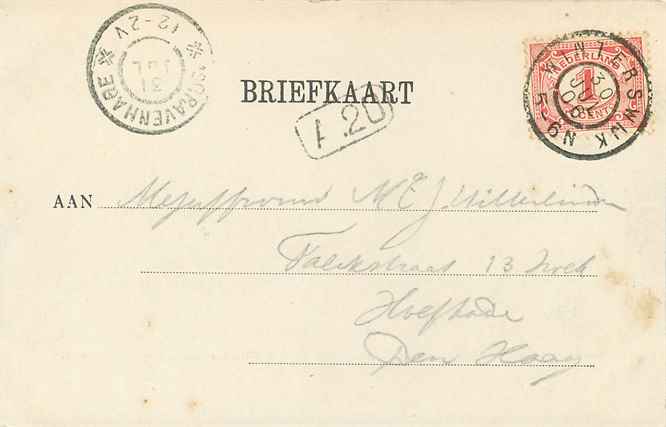 'SGRAVENHAGE
12-2V
31
JUL
BRIEFKAART
NEDERLAND
1
CENT
WINTERSWIJK
30
JUL
06
5-6N
AAN Mejuffrouw M E J Witterlinden
Falckstraat 13 hoek
Hoefkade
Den Haag